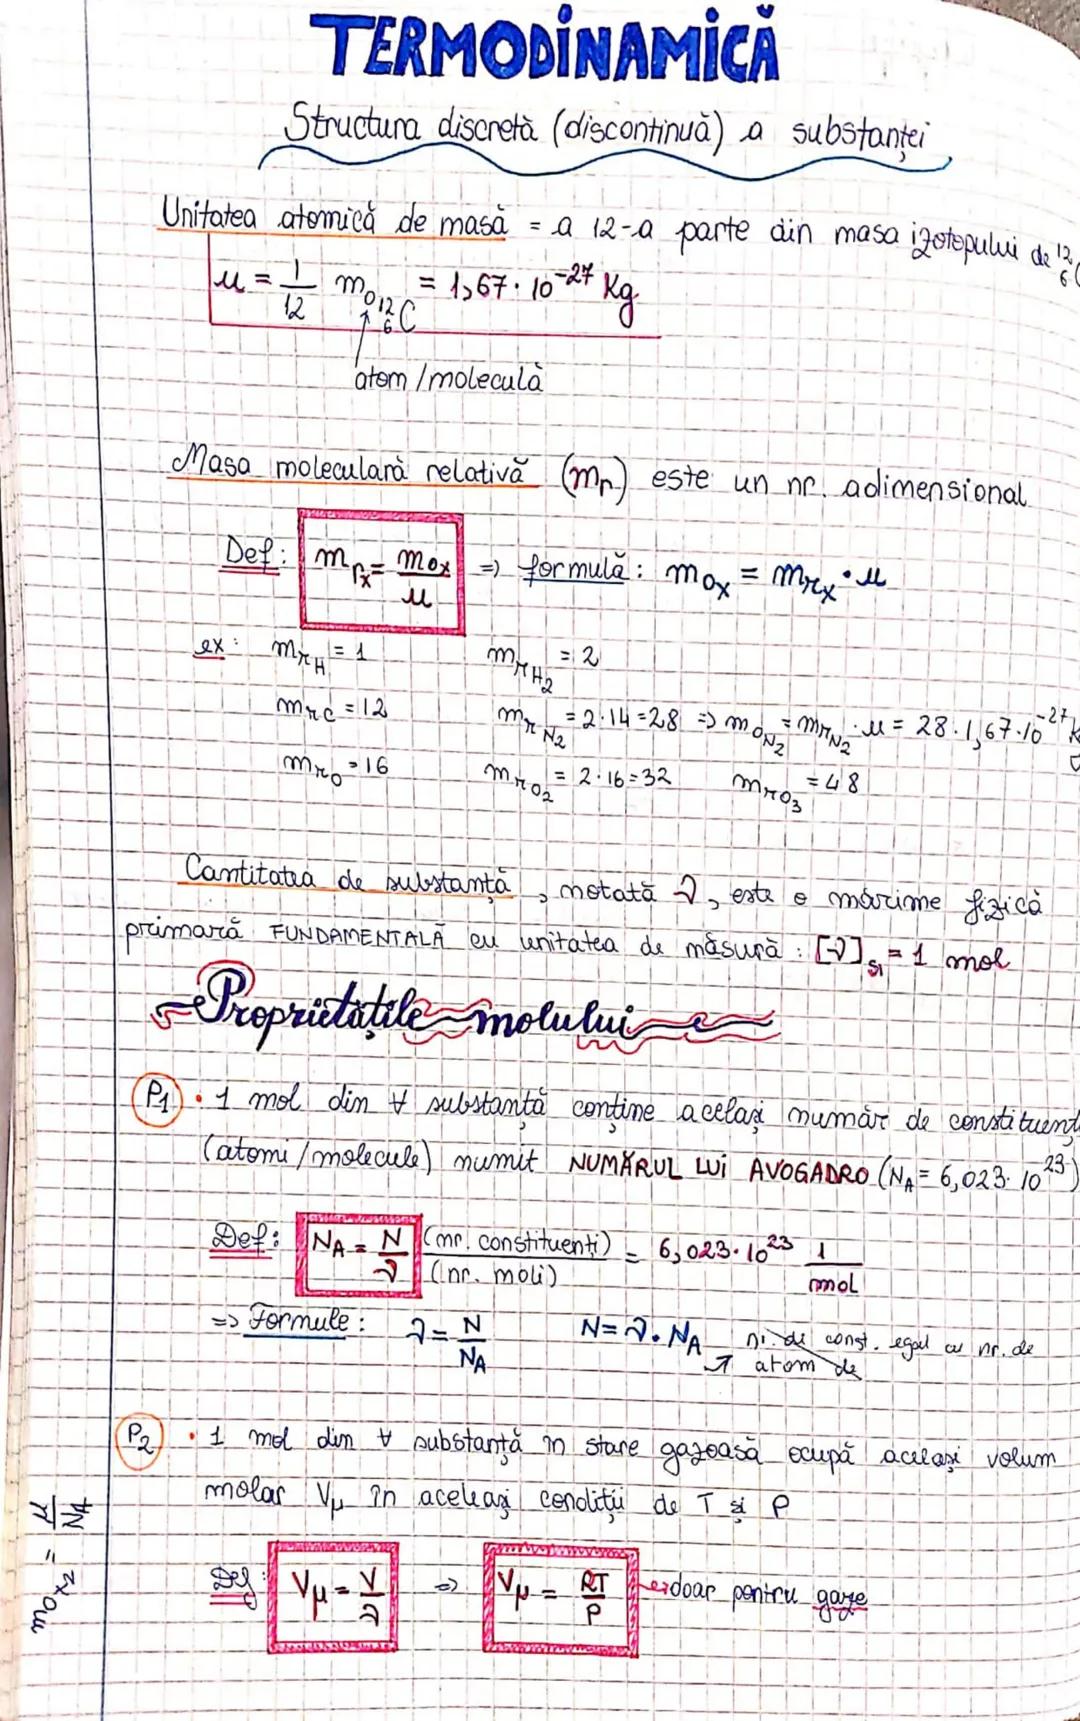 TERMODINAMICĂ
Structura discretă (discontinuă) a substanței
Unitatea atomică de masă = a 12-a parte din masa izotopului de ¹²₆C
u = 1/12 m₀ ¹²₆C = 1,67·10⁻²⁷ Kg
atom/moleculă
Masa moleculară relativă (mr) este un nr. adimensional
Def: mrx = mox/u => formulă: mox = mrx · u
ex: mrH = 1 mrH₂ = 2
mrC = 12 mrN₂ = 2·14 = 28 => moN₂ = mrN₂ · u = 28·1,67·10⁻²⁷ k
mrO = 16 mrO₂ = 2·16 = 32 mrO₃ = 48
Cantitatea de substanță, notată ν, este o mărime fizică
primară FUNDAMENTALĂ cu unitatea de măsură: [ν]SI = 1 mol
Proprietățile molului
P1 • 1 mol din ∀ substanță conține același număr de constituenț
(atomi/molecule) numit NUMĂRUL LUI AVOGADRO (NA = 6,023·10²³)
Def: NA = N/ν (nr. constituenți)/(nr. moli) = 6,023·10²³ 1/mol
=> Formule: ν = N/NA N = ν·NA nr. de const. egal cu nr. de
atom de
P2 • 1 mol din ∀ substanță în stare gazoasă ocupă același volum
molar Vμ în aceleași condiții de T și P
Def: Vμ = V/ν => Vμ = RT/P doar pentru gaze
mox = μ/NA